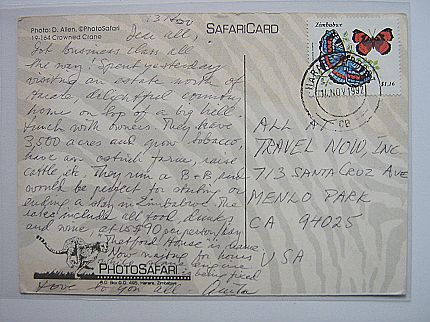 Photo: D. Allen, ©PhotoSafari
19-164 Crowned Crane
SAFARICARD
13 Nov
Dear all,
Got Business Class all
the way! Spent yesterday
visiting an estate north of
Harare, delightful country
home on top of a big hill.
Lunch with owners. They have
3,500 acres and grow tobacco,
have an ostrich farm, raise
cattle, etc. They run a B+B and
would be perfect for starting or
ending a stay in Zimbabwe. The
rates include all food, drinks
and wine, at US$90 per person/day
"Thetford House" is the name
Now waiting for hours
while plane engine
being fixed
Love to you all
PHOTOSAFARI
P.O. Box G.D. 485, Harare, Zimbabwe
Zimbabwe
$1,16
HARARE
NOV 1997
ALL AT
TRAVEL NOW, INC
713 SANTA CRUZ AVE
MENLO PARK
CA 94025
USA